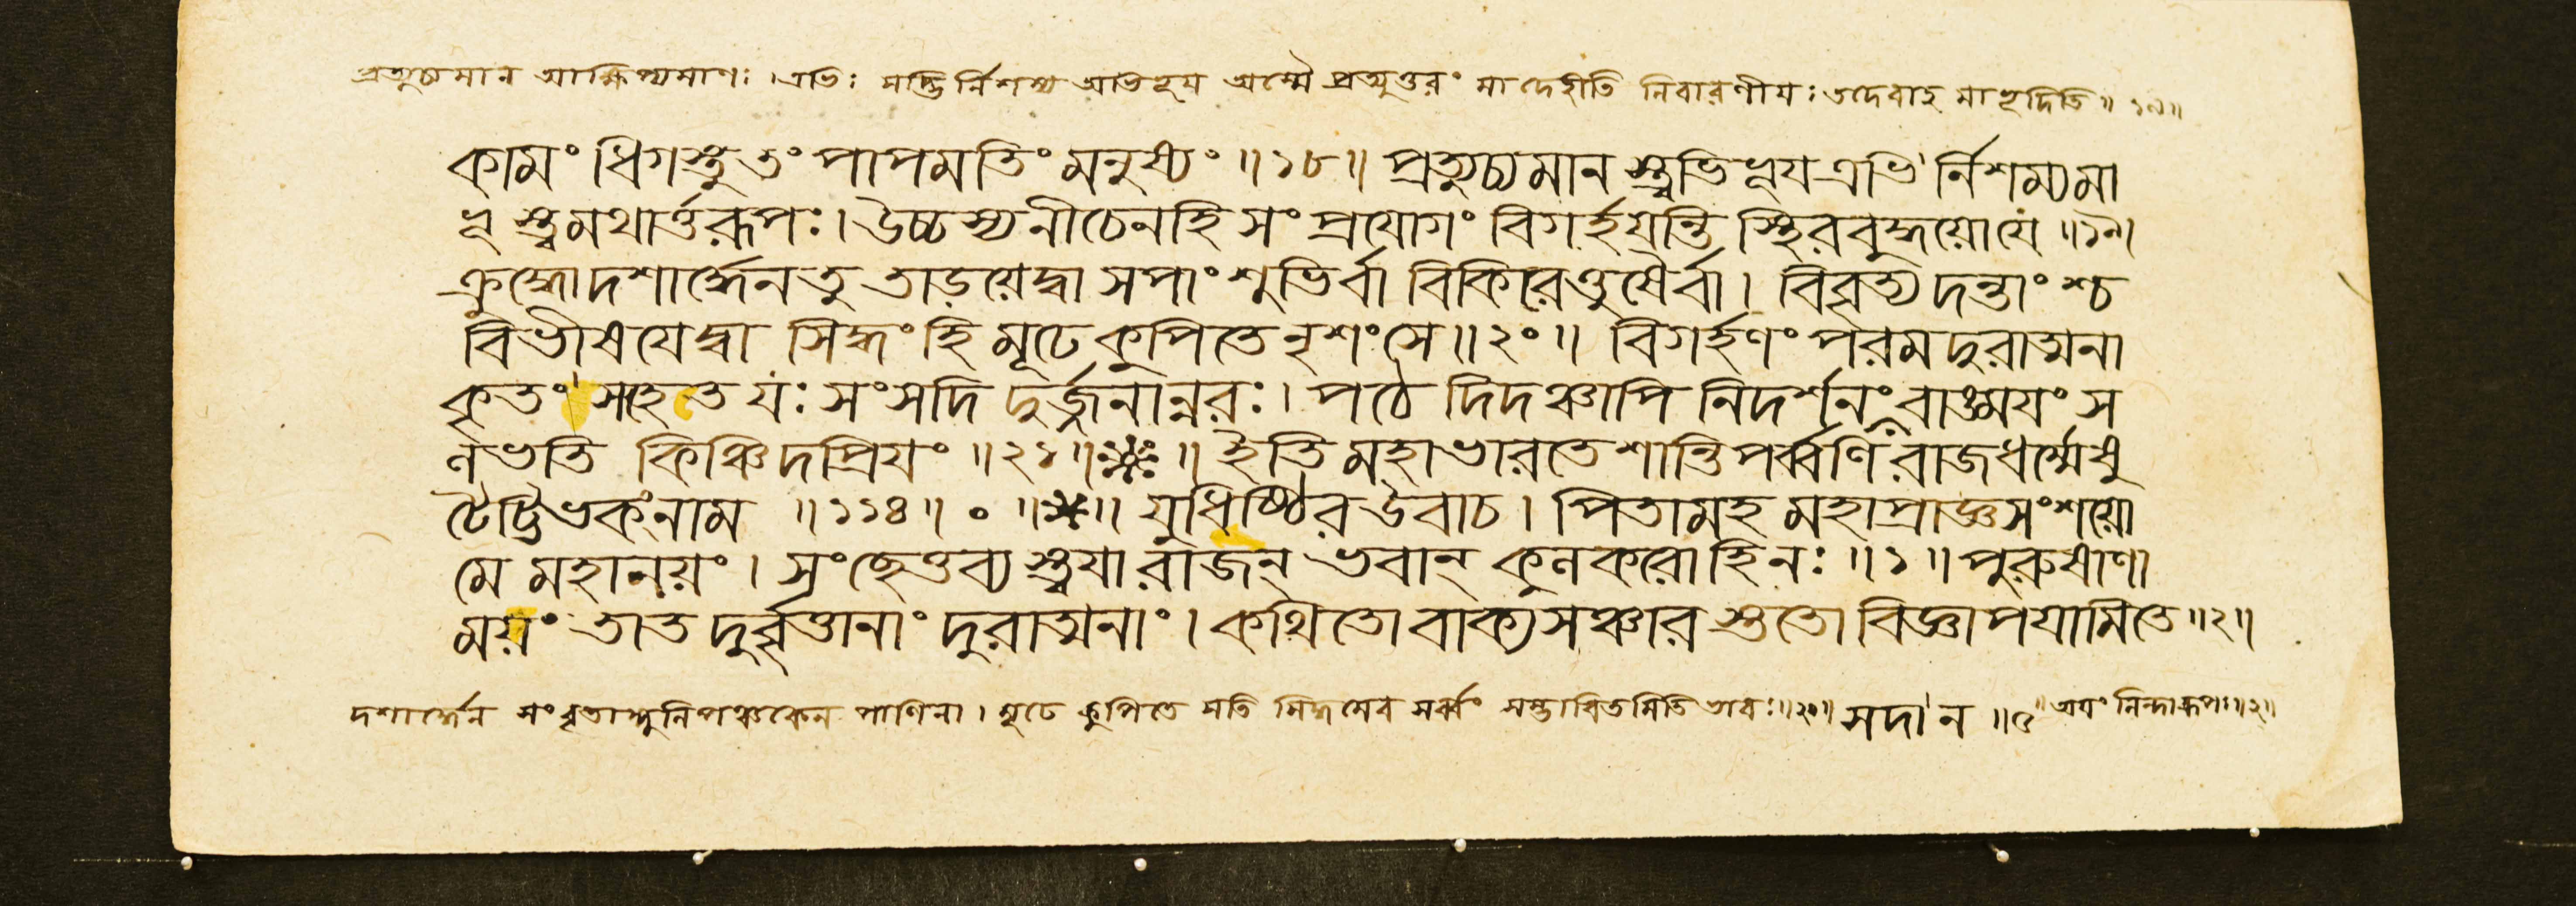 প্রত্যুচ্যমান আক্ষিপ্যমাণঃ । এভিঃ সদ্ভির্নিশম্য অভিহূয় অস্মৈ প্রত্যুত্তরং মা দেহীতি নিবারণীয়ঃ তদেবাহ মাহূদিতি ॥ ১৯ ॥
কামং ধিগস্তু তং পাপমতিং মনুষ্যং ॥ ১৮ ॥ প্রত্যুচ্যমান স্ত্বভিহূয এভি র্নিশম্যমা
হূ স্ত্বমথার্ত্তরূপঃ । উচ্চস্য নীচেনহি সং প্রযোগং বিগর্হযন্তি স্থিরবুদ্ধযোযে ॥ ১৯ ॥
ক্রুদ্ধোদশার্দ্ধেনতু তাড়যেদ্বা সপাং শুভির্বা বিকিরেত্তুষৈর্বা । বিবৃত্য দন্তাং শ্চ
বিভীষযেদ্বা সিদ্ধং হি মূঢে কুপিতে নৃশংসে ॥ ২০ ॥ বিগর্হণং পরমদুরাত্মনা
কৃতং সহেত যঃ সংসদি দুর্জ্জনান্নরঃ । পঠে দিদঞ্চাপি নিদর্শনং বাঙ্ময়ং স
নভতি কিঞ্চিদপ্রিযং ॥ ২১ ॥ ※ ॥ ইতি মহাভারতে শান্তিপর্ব্বণি রাজধর্ম্মেষু
টৈট্টিভকং নাম ॥ ১১৪ ॥ ० ॥ ※ ॥ যুধিষ্ঠির উবাচ । পিতামহ মহাপ্রাজ্ঞ সংশযো
মে মহানয়ং । সংছেত্তব্য স্ত্বযা রাজন্ ভবান্ কুনকরোহিনঃ ॥ ১ ॥ পুরুষাণা
ময়ং তাত দুর্ব্বৃত্তানাং দুরাত্মনাং । কথিতো বাক্যসঞ্চার স্ততো বিজ্ঞাপযামিতে ॥ ২ ॥
দশার্দ্ধেন সংবৃতাঙ্গুলিপঞ্চকেন পাণিনা । মূঢে কুপিতে সতি সিদ্ধমেব সর্ব্বং সম্ভাবিতমিতি ভাবঃ ॥ ২০ ॥ সদা ন ॥ ৫ ॥ অয়ং নিন্দারূপঃ ॥ ২ ॥